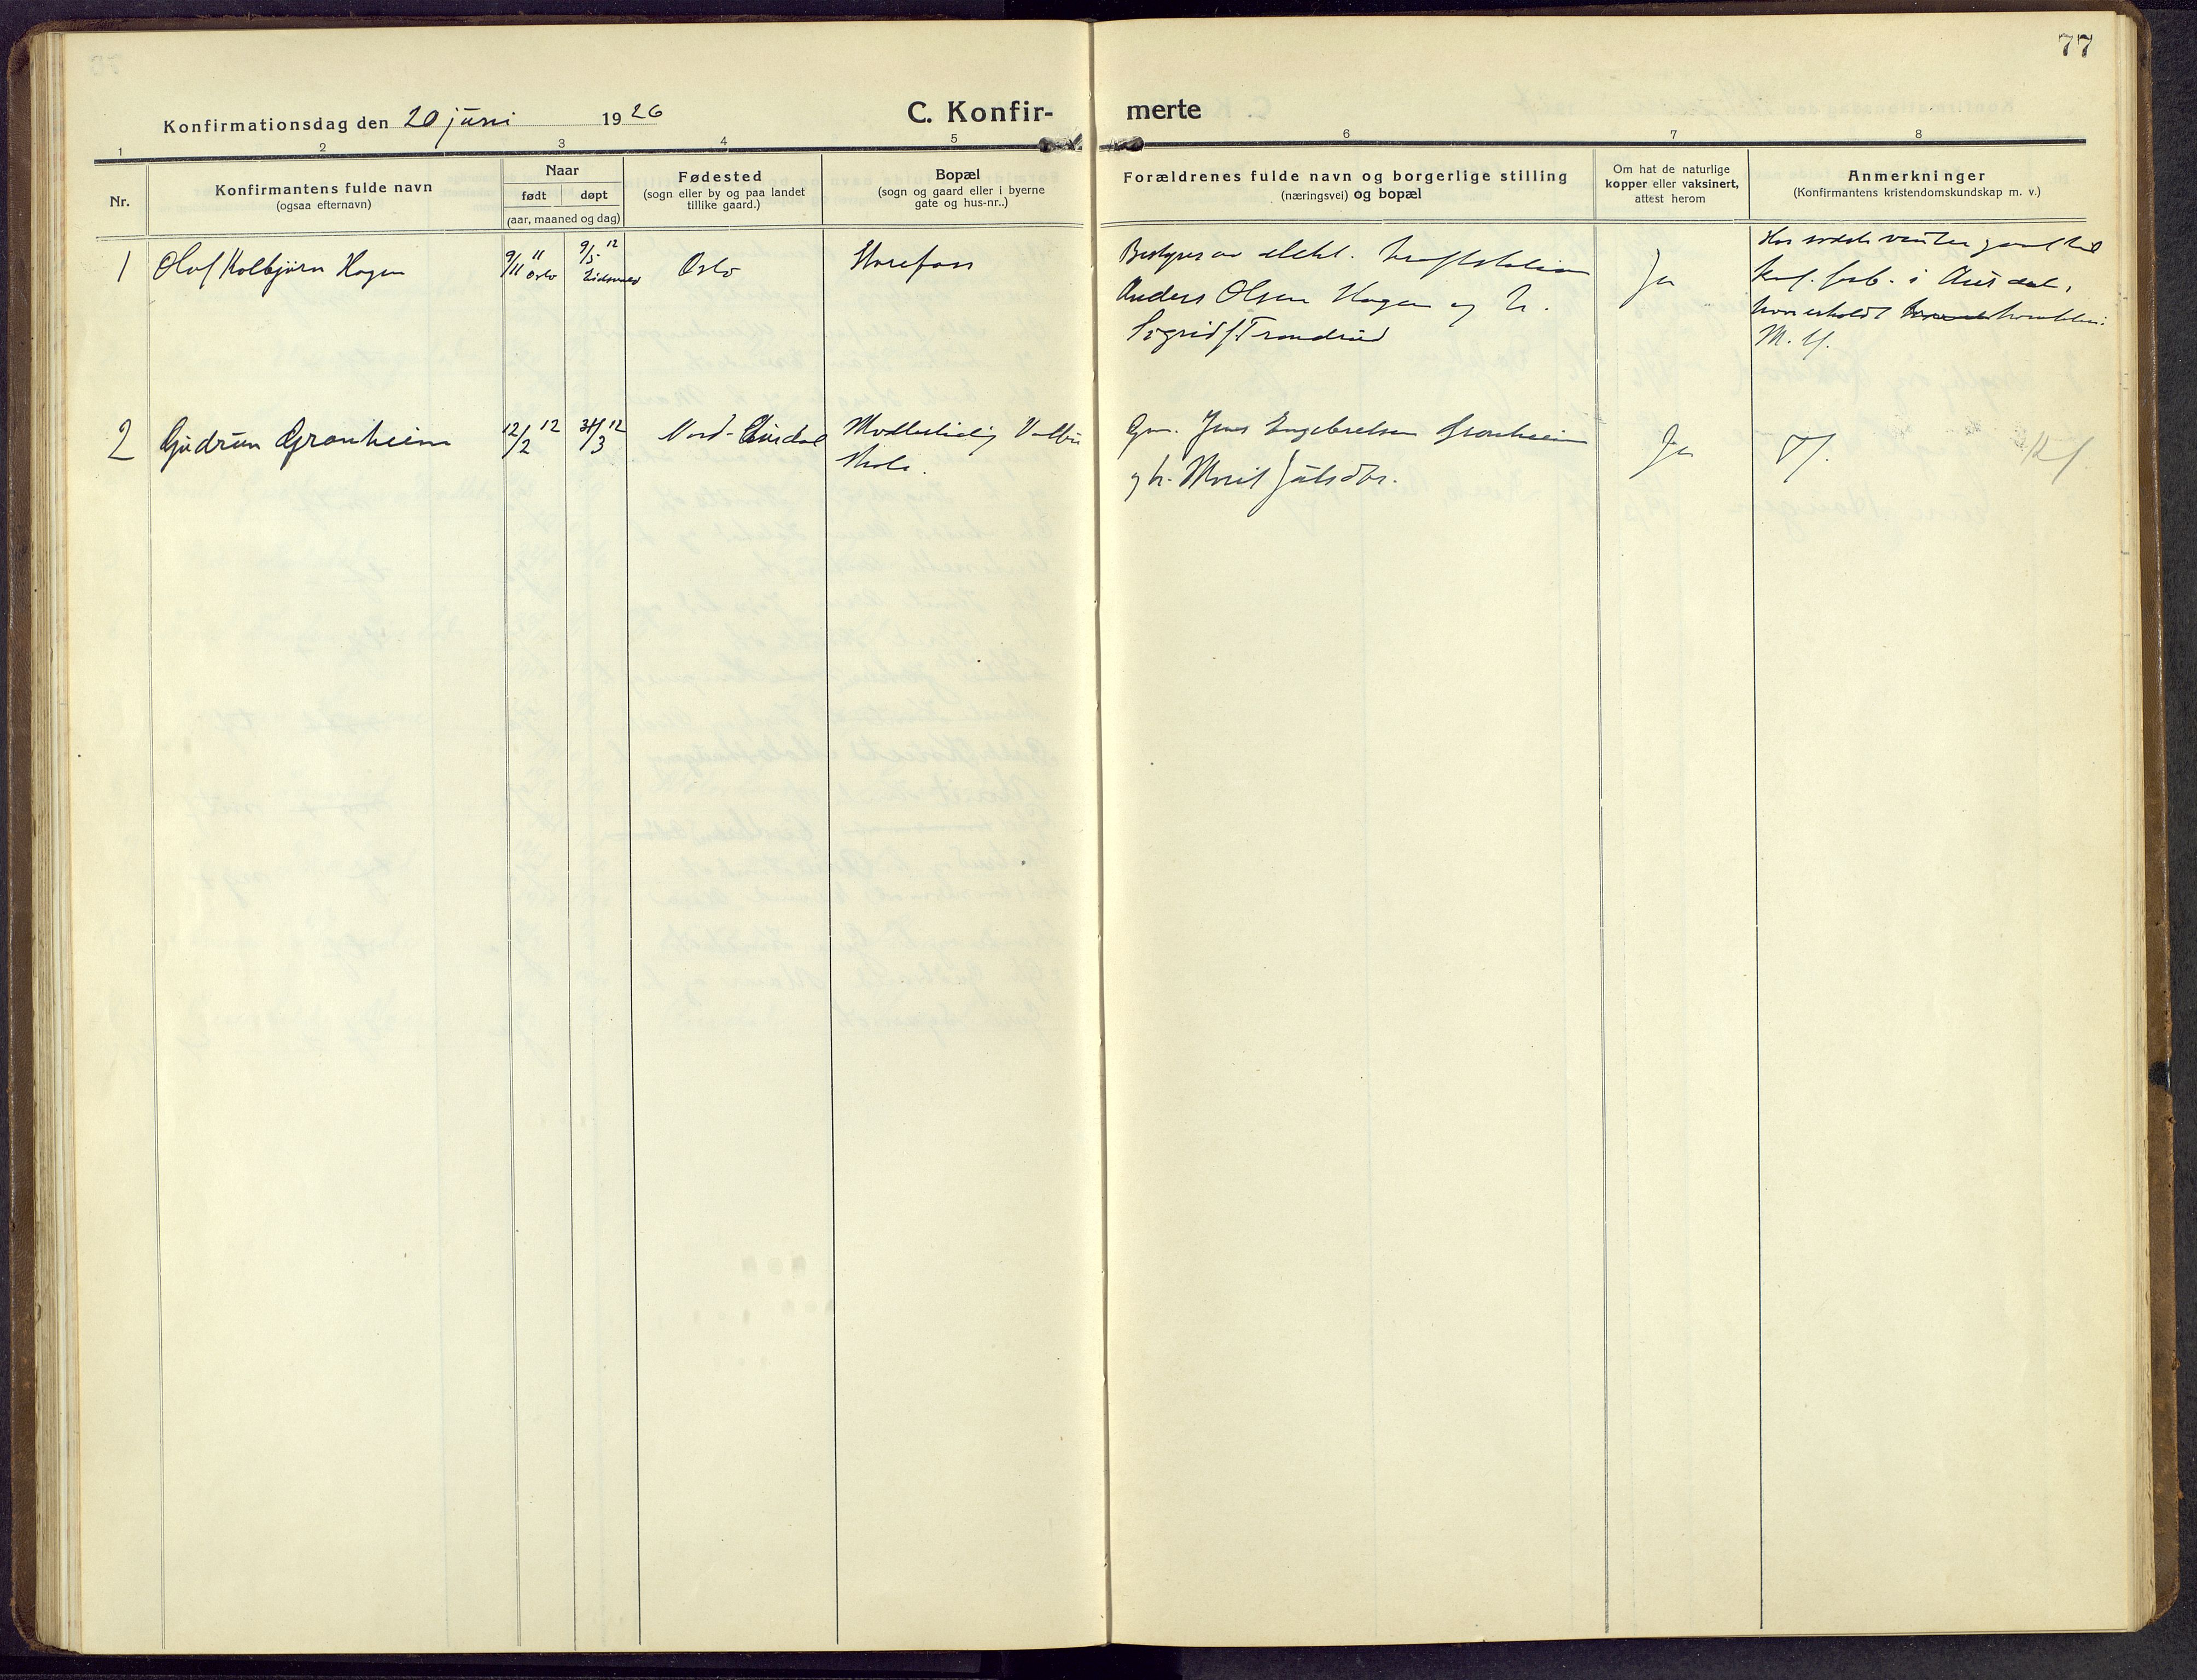 77
Konfirmationsdag den 20 juni 1926
C. Konfir-
merte
1 2 3 4 5 6 7 8
Nr.
Konfirmantens fulde navn
(ogsaa efternavn)
Naar
født døpt
(aar, maaned og dag)
Fødested
(sogn eller by og paa landet
tillike gaard.)
Bopæl
(sogn og gaard eller i byerne
gate og hus-nr..)
Forældrenes fulde navn og borgerlige stilling
(næringsvei) og bopæl
Om hat de naturlige
kopper eller vaksinert,
attest herom
Anmerkninger
(Konfirmantens kristendomskundskap m. v.)
1 Olaf Kolbjørn Hagen
9/11 11 Oslo
9/5 12
Oslo
Storefoss
Bestyrer av elekt. kraftstation
Anders Olsen Hagen og h.
Sigrid f. Trondrud
Ja
konf. forb. i Aurdal,
2 Gudrun Granheim
12/2 12
31/3 12
Nord-Aurdal
skole.
Gm. Jens Engebretsen Granheim
og h. Marit Julsdtr.
Ja